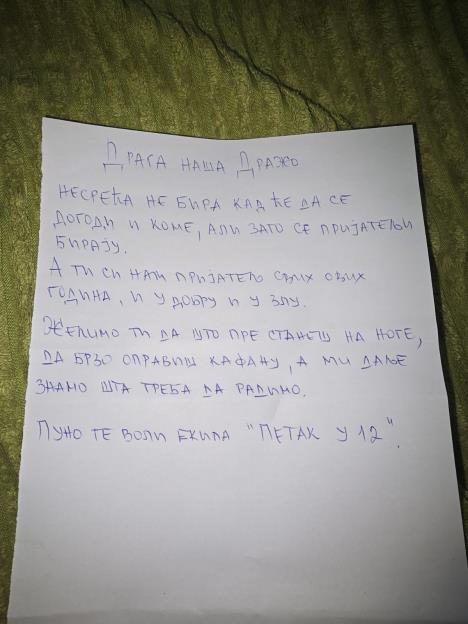 Драга наша Дражо
несрећа не бира кад ће да се
догоди и коме, али зато се пријатељи
бирају.
А ти си нам пријатељ свих ових
година, и у добру и у злу.
Желимо ти да што пре станеш на ноге,
да брзо оправиш кафану, а ми даље
знамо шта треба да радимо.
Пуно те воли екипа "Петак у 12".